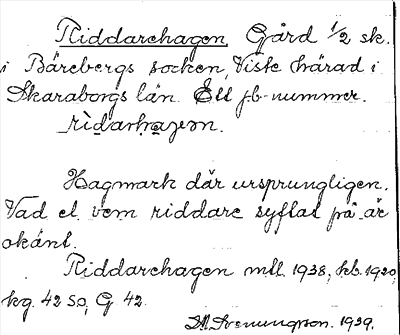 Riddarehagen, Gård 1/2 sk.
i Bärebergs socken, Viste härad i
Skaraborgs län. Ett jb-nummer.
ridarhagen.
Hagmark där ursprungligen.
Vad el. vem riddare syftat på är
okänt.
Riddarehagen mtl. 1938, kb. 1920,
kg. 42 SO, G 42.
Svenungson. 1939.